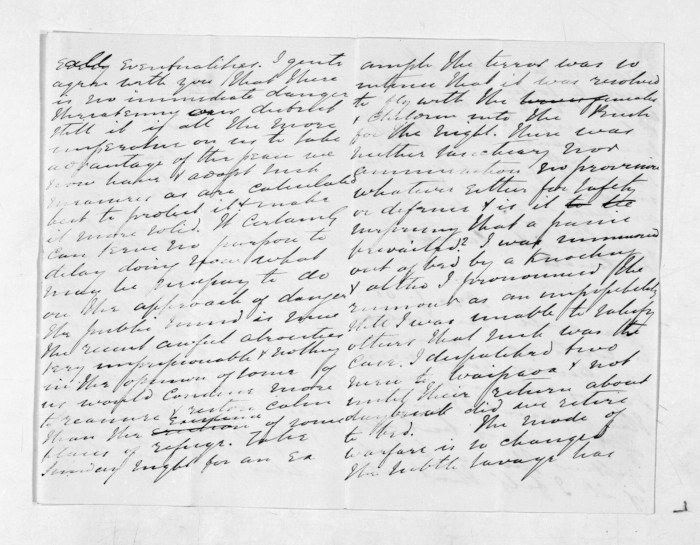 Eventualities. I quite
agree with you that there
is no immediate danger
threatening our district
still it is all the more
imperative on us to take
advantage of the peace we
now have & adopt such
measures as are calculated
best to protect it & make
it more solid. It certainly
can serve no purpose to
delay doing now what
may be necessary to do
on the approach of danger
The public mind is since
the recent awful atrocities
very impressionable & nothing
in the opinion of some of
us would conduce more
to reassure & restore calm
than the erection of some
places of refuge. Take
Sunday night for an Ex
ample the terror was so
intense that it was resolved
to fly with the females
& children into the Bush
for the night. There was
neither sanctuary nor
ammunition no provision
whatever either for safety
or defence & is it to be
surprising that a panic
prevailed? I was summoned
out of bed by a knocking
& altho I pronounced the
rumour as an impossibility
still I was unable to satisfy
others that such was the
case. I dispatched two
men to Waipawa & not
until their return about
daybreak did we retire
to bed. The mode of
warfare is so changed
the subtle savage has